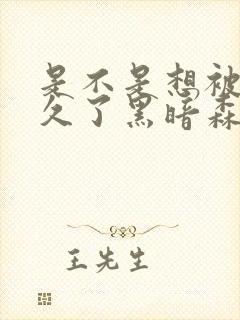 是不是想被
久了黑暗森
王先生